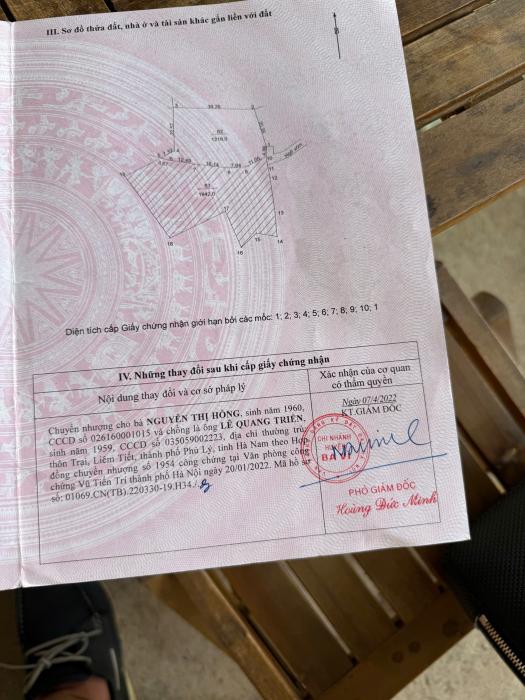 III. Sơ đồ thửa đất, nhà ở và tài sản khác gắn liền với đất
B
62
1318,9
63
1642,0
17
10
11
12
13
14
15
16
18
Diện tích cấp Giấy chứng nhận giới hạn bởi các mốc: 1; 2; 3; 4; 5; 6; 7; 8; 9; 10; 1
IV. Những thay đổi sau khi cấp giấy chứng nhận
Nội dung thay đổi và cơ sở pháp lý
Xác nhận của cơ quan
có thẩm quyền
Chuyển nhượng cho bà NGUYỄN THỊ HỒNG, sinh năm 1960,
CCCD số 026160001015 và chồng là ông LÊ QUANG TRIỂN,
sinh năm 1959, CCCD số 035059002223, địa chỉ thường trú:
thôn Trại, Liêm Tiết, thành phố Phủ Lý, tỉnh Hà Nam theo Hợp
đồng chuyển nhượng số 1954 công chứng tại Văn phòng công
chứng Vũ Tiến Trí thành phố Hà Nội ngày 20/01/2022. Mã hồ sơ
số: 01069.CN(TB).220330-19.H34./.
Ngày 07/4/2022
KT.GIÁM ĐỐC
CHI NHÁNH
BA VÌ
PHÓ GIÁM ĐỐC
Hoàng Đức Minh